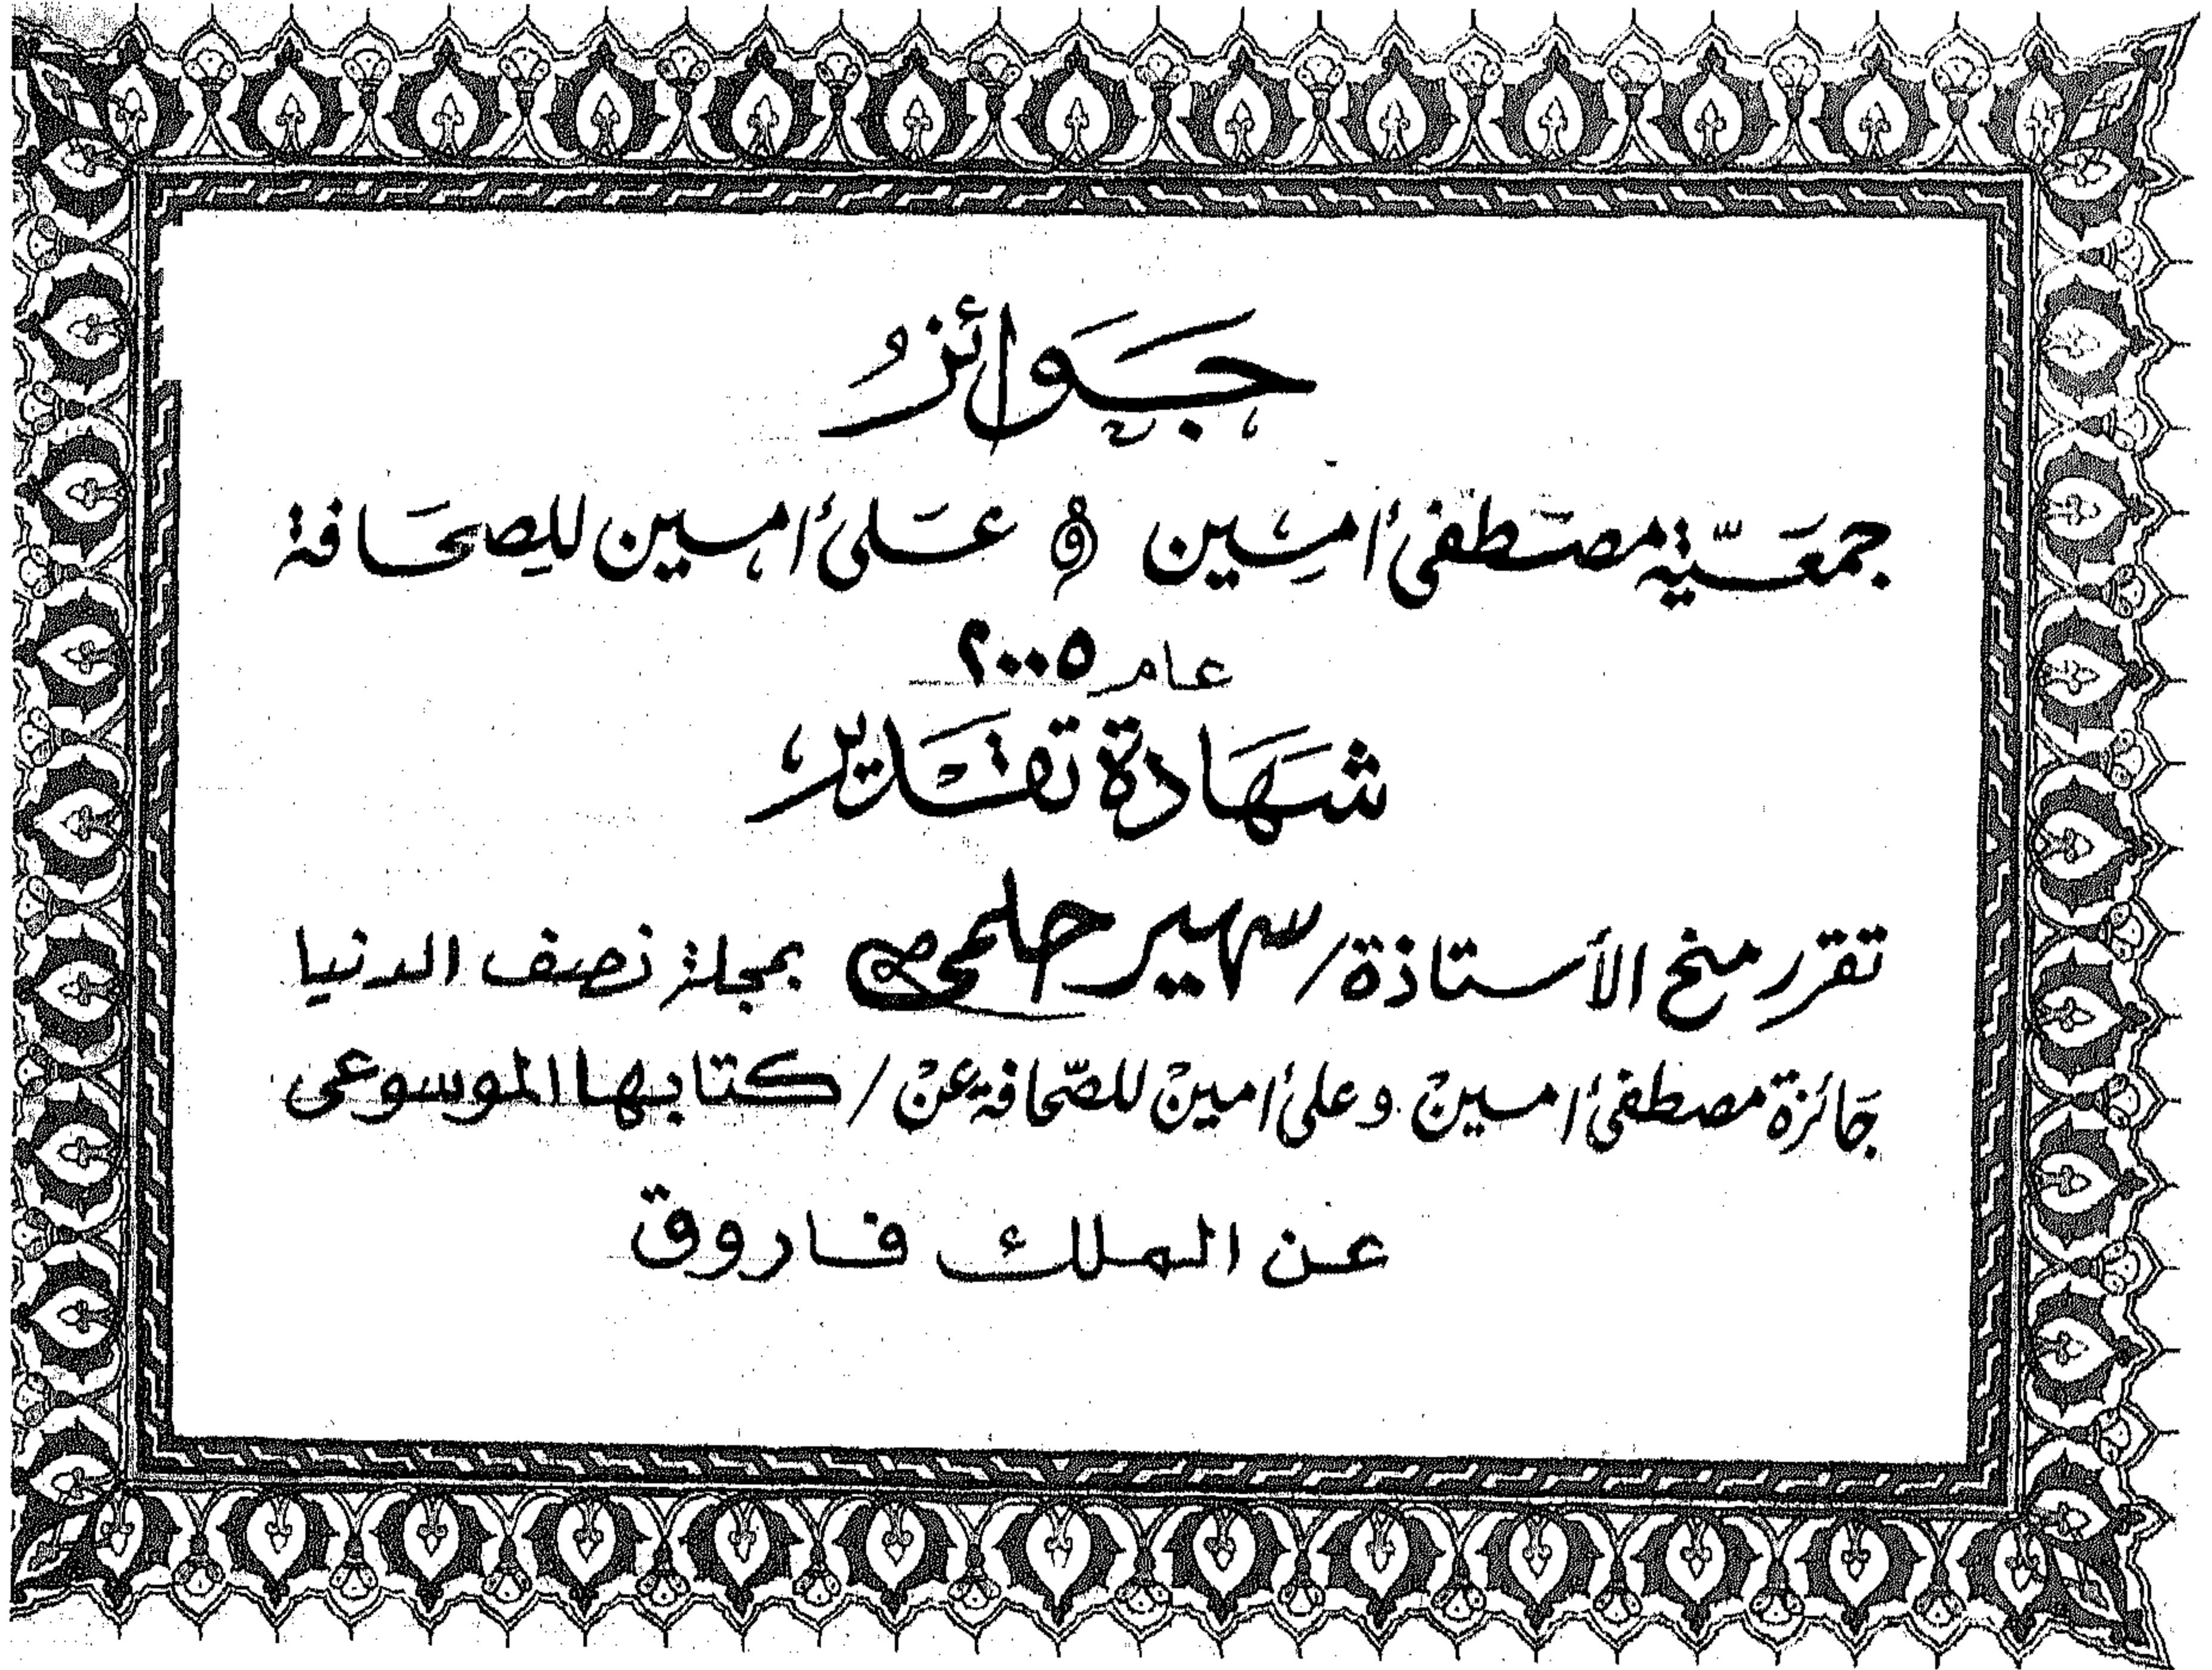 جوائز
جمعية مصطفى أمين و على أمين للصحافة
عام ٢٠٠٥
شهادة تقدير
تقرر منح الأستاذة / سهير حلمى بمجلة نصف الدنيا
جائزة مصطفى أمين وعلى أمين للصحافة عن / كتابها الموسوعى
عن الملك فاروق